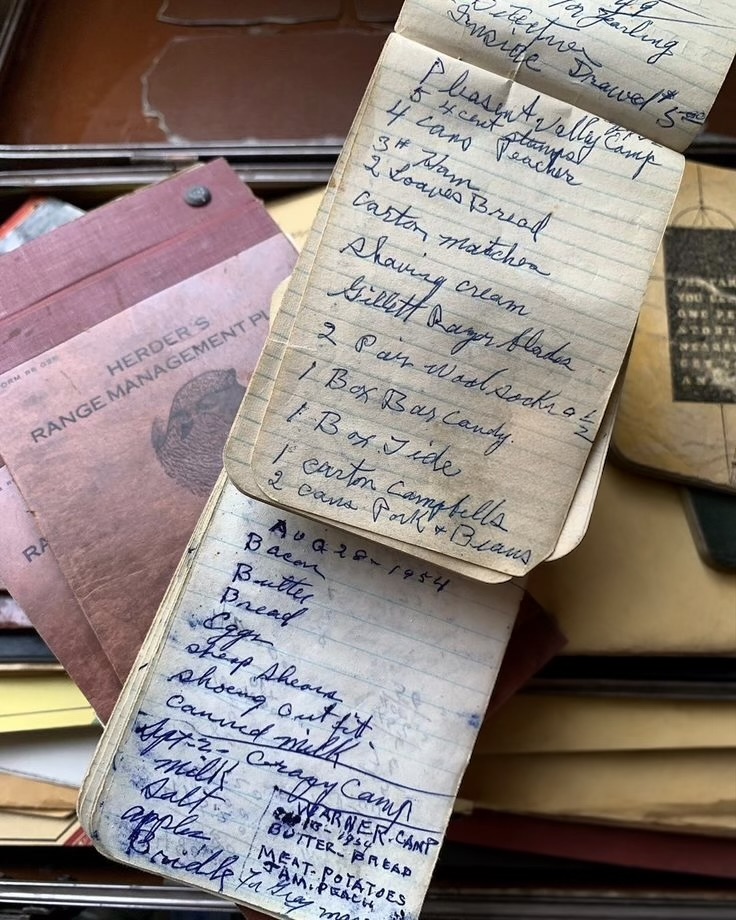 for Yearling
Inside Drawed $5.00
Pleasant Valley Camp
5 4 cent stamps
4 cans Peaches
3# Ham
2 Loaves Bread
carton matches
Shaving cream
Gillett Razor blades
2 Pair Wool socks 9 1/2
1 Box Bar Candy
1 Box Tide
1 carton Campbells
2 cans Pork & Beans
HERDER'S
RANGE MANAGEMENT
AUG 28-1954
Bacon
Butter
Bread
Eggs
sheep shears
shoeing outfit
canned milk
Spt-2- Crazy Camp
milk
Salt
apples
Bridle for Gray
WARNER-CAMP
1954
BUTTER-BREAD
MEAT-POTATOES
JAM-PEACH
YOU
ONE